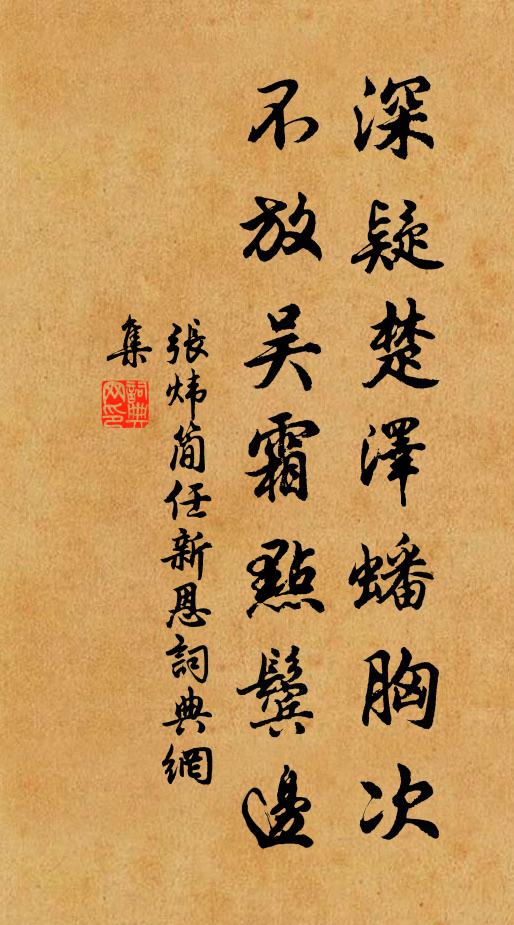 深疑楚澤蟠胸次
不放吳霜點鬢邊
張煒简任新恩詞典網
集
詞典網印